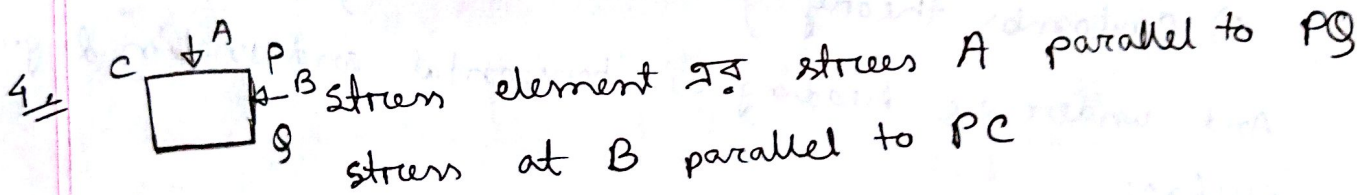 4
A
C
P
B
Q
stress element এর stress A parallel to PQ
stress at B parallel to PC